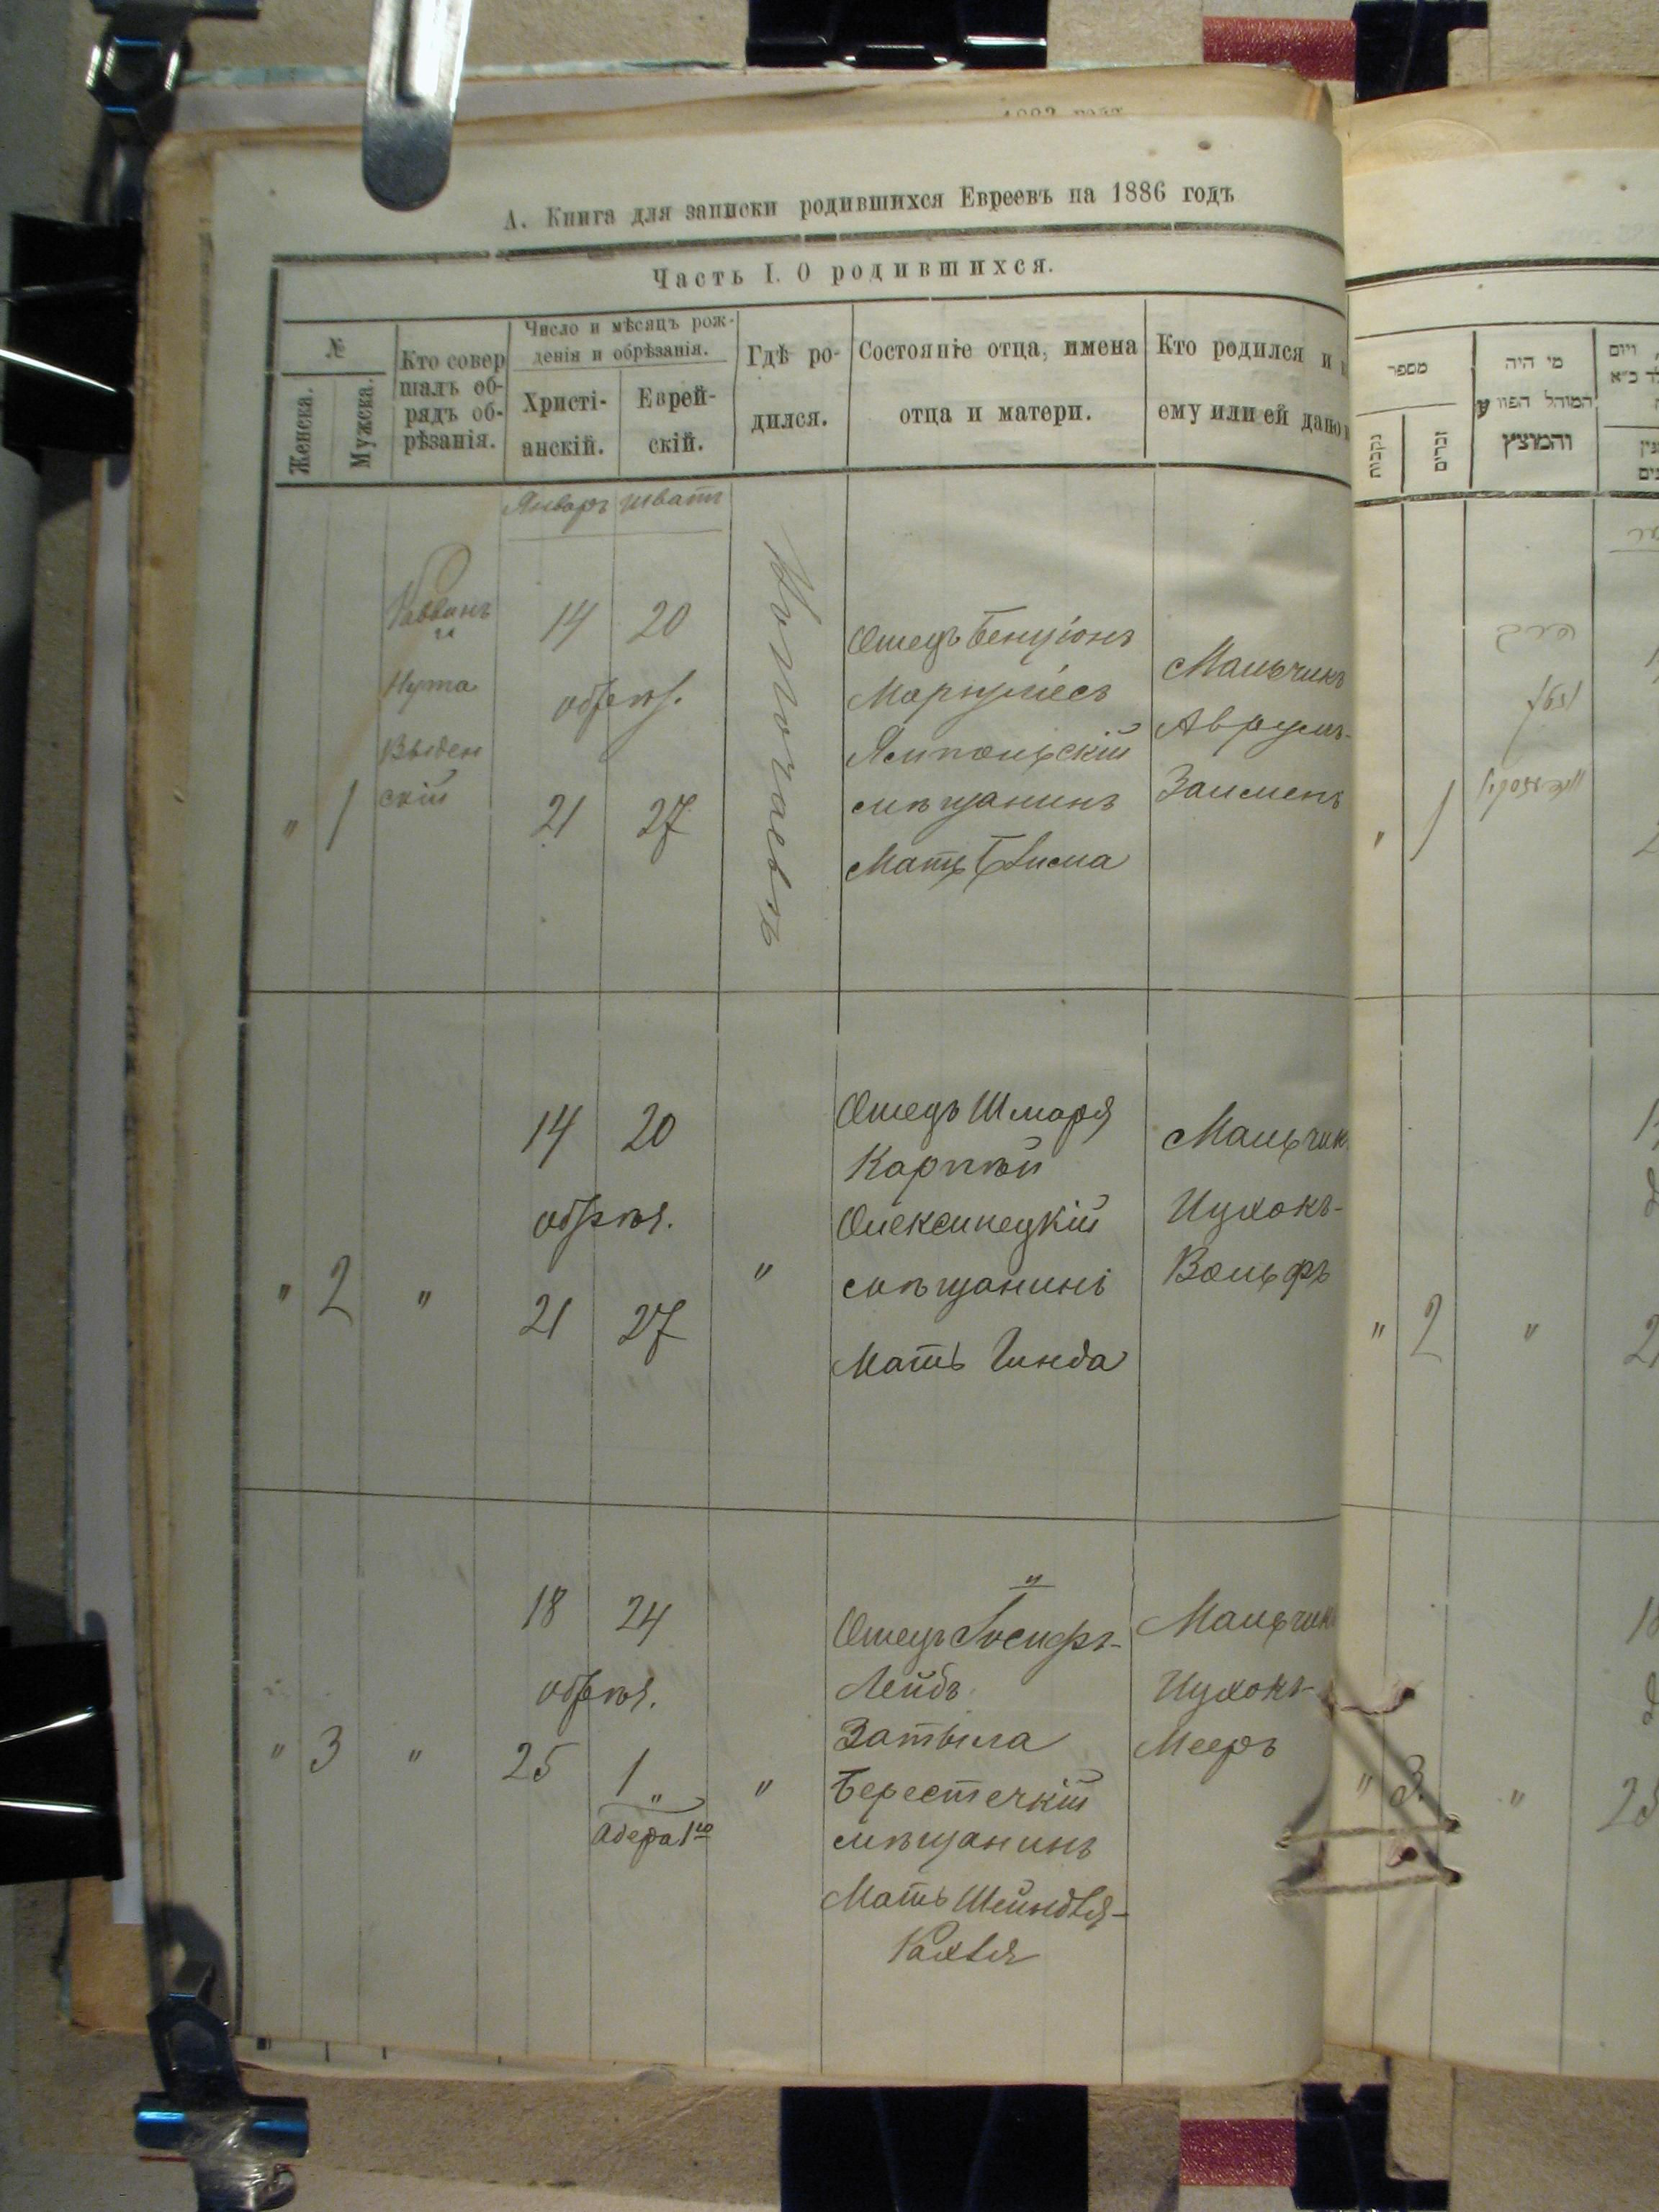 А. Книга для записки родившихся Евреевъ на 1886 годъ
Часть I. О родившихся.
№
Женска.
Мужска.
Кто совер
шалъ об-
рядъ об-
рѣзанія.
Число и мѣсяцъ рож-
денія и обрѣзанія.
Христі-
анскій.
Еврей-
скій.
Гдѣ ро-
дился.
Состояніе отца, имена
отца и матери.
Кто родился и
ему или ей дано
Январъ Шватъ
" 1
Раввинъ
Нута
14 20
обрѣз.
21 27
Отецъ Бенціонъ
Маргулисъ
Ямпольскій
мѣщанинъ
Мать
Мальчикъ
Аврумъ-
Зальменъ
" 2 "
14 20
обрѣз.
21 27
"
Отецъ Шмаря
Карпѣй
Олексинецкій
мѣщанинъ
Мать Гинда
Мальчик
Ицхокъ-
Вольфъ
" 3 "
18 24
обрѣз.
25 1 "
Адера 1го
"
"
Отецъ Іосифъ-
Лейбъ
Затыла
Берестечкій
мѣщанинъ
Мать Шейндля-
Рахля
Мальчик
Ицхокъ-
Мееръ
מספר
נקבות
זכרים
מי היה
המוהל הפורע
והמוצץ
" 1
" 2 "
" 3 "
25